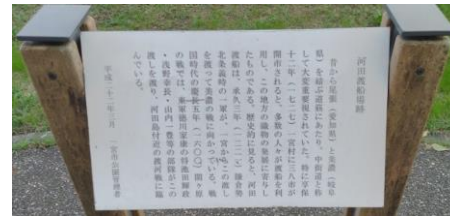 河田渡船場跡
昔から尾張(愛知県)と美濃(岐阜
県)を結ぶ道筋にあたり、中街道と称
して大変重要視されていた。特に享保
十二年(一七二七)一宮村に三八市が
開市されると、多数の人々が渡船を利
用し、この地方の織物の発展に寄与し
たものである。歴史的に見ると、河田
渡船は、承久三年(一二二一)鎌倉勢
北条義時の一軍が、一宮からこの渡し
を渡って美濃の戦に向かっている。戦
国時代の慶長五年(一六〇〇)関ヶ原
の戦では、東軍徳川家康の将池田輝政
・浅野幸長・山内一豊等の部隊がこの
渡しを渡り、河田島付近の渡河戦に臨
んでいる。
平成二十二年三月 一宮市公園管理者